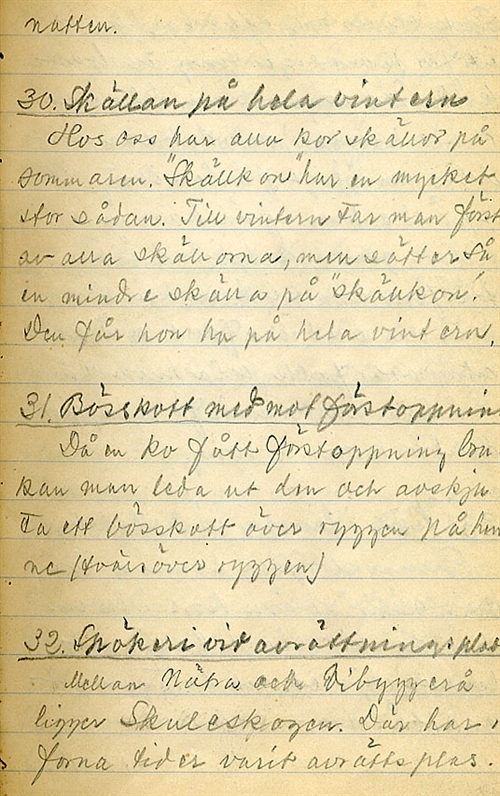 natten.
30. Skällan på hela vintern
Hos oss har alla kor skällor på
sommaren. "Skällkon" har en mycket
stor sådan. Till vintern tar man först
av alla skällorna, men sätter så
en mindre skälla på "skällkon".
Den får hon ha på hela vintern.
31. Bösskott med mot förstoppnin
Då en ko fått förstoppning
kan man leda ut den och avskju
ta ett bösskott över ryggen på hen
ne (tvärsöver ryggen)
32. Spökeri vid avrättningsplas
Mellan Nätra och Vibyggerå
ligger Skuleskogen. Där har i
forna tider varit avrättsplas.